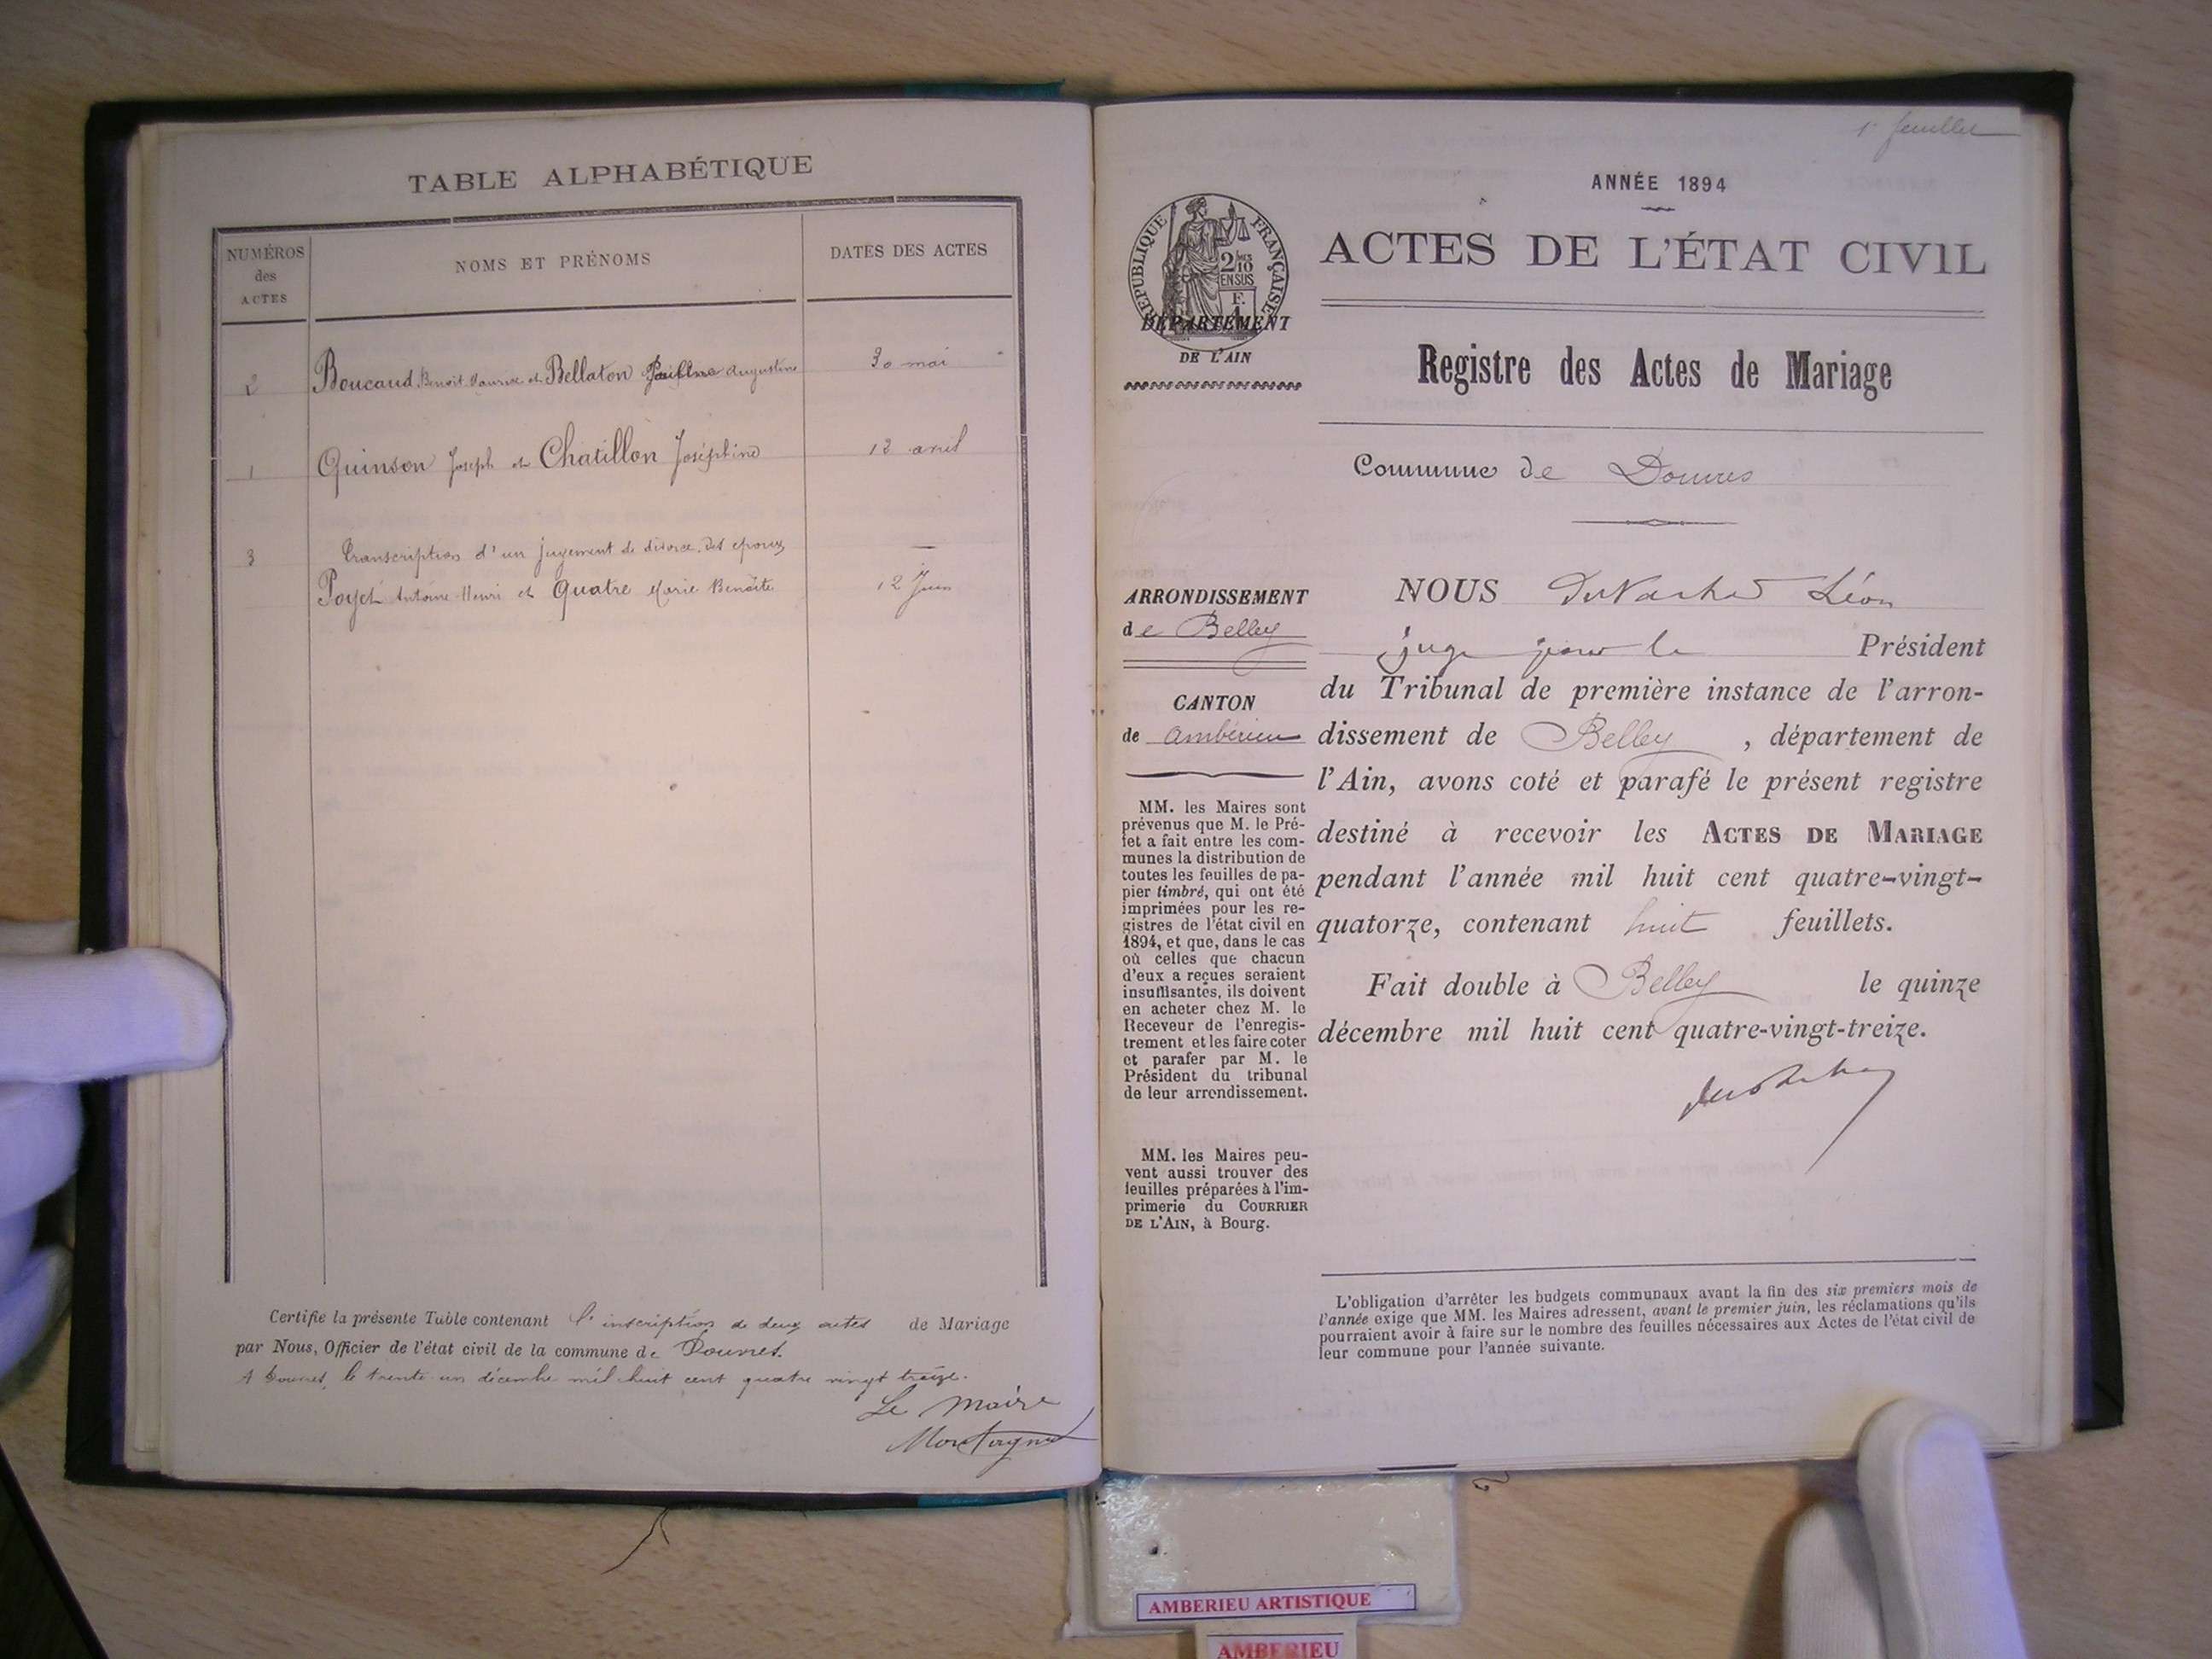 TABLE ALPHABÉTIQUE
NUMÉROS
des
ACTES
NOMS ET PRÉNOMS
DATES DES ACTES
2 Boucaud Benoit Maurice et Bellaton Pauline Augustine 30 mai
1 Quinson Joseph et Chatillon Joséphine 12 avril
3 Transcription d'un jugement de divorce des epoux
Poyet Antoine Henri et Quatre Marie Benoite 12 Juin
Certifie la présente Table contenant l'inscription de deux actes de Mariage
par Nous, Officier de l'état civil de la commune de Douvres.
A Douvres, le trente un décembre mil huit cent quatre vingt treize.
Le Maire
1er feuillet
ANNÉE 1894
ACTES DE L'ÉTAT CIVIL
RÉPUBLIQUE FRANÇAISE
2/10
EN SUS
F.
DÉPARTEMENT
DE L'AIN
Registre des Actes de Mariage
Commune de Douvres
ARRONDISSEMENT
de Belley
CANTON
de Ambérieu
MM. les Maires sont
prévenus que M. le Pré-
fet a fait entre les com-
munes la distribution de
toutes les feuilles de pa-
pier timbré, qui ont été
imprimées pour les re-
gistres de l'état civil en
1894, et que, dans le cas
où celles que chacun
d'eux a reçues seraient
insuffisantes, ils doivent
en acheter chez M. le
Receveur de l'enregis-
trement et les faire coter
et parafer par M. le
Président du tribunal
de leur arrondissement.
MM. les Maires peu-
vent aussi trouver des
feuilles préparées à l'im-
primerie du COURRIER
DE L'AIN, à Bourg.
NOUS Léon
juge pour le Président
du Tribunal de première instance de l'arron-
dissement de Belley, département de
l'Ain, avons coté et parafé le présent registre
destiné à recevoir les ACTES DE MARIAGE
pendant l'année mil huit cent quatre-vingt-
quatorze, contenant huit feuillets.
Fait double à Belley le quinze
décembre mil huit cent quatre-vingt-treize.
L'obligation d'arrêter les budgets communaux avant la fin des six premiers mois de
l'année exige que MM. les Maires adressent, avant le premier juin, les réclamations qu'ils
pourraient avoir à faire sur le nombre des feuilles nécessaires aux Actes de l'état civil de
leur commune pour l'année suivante.
AMBERIEU ARTISTIQUE
AMBERIEU